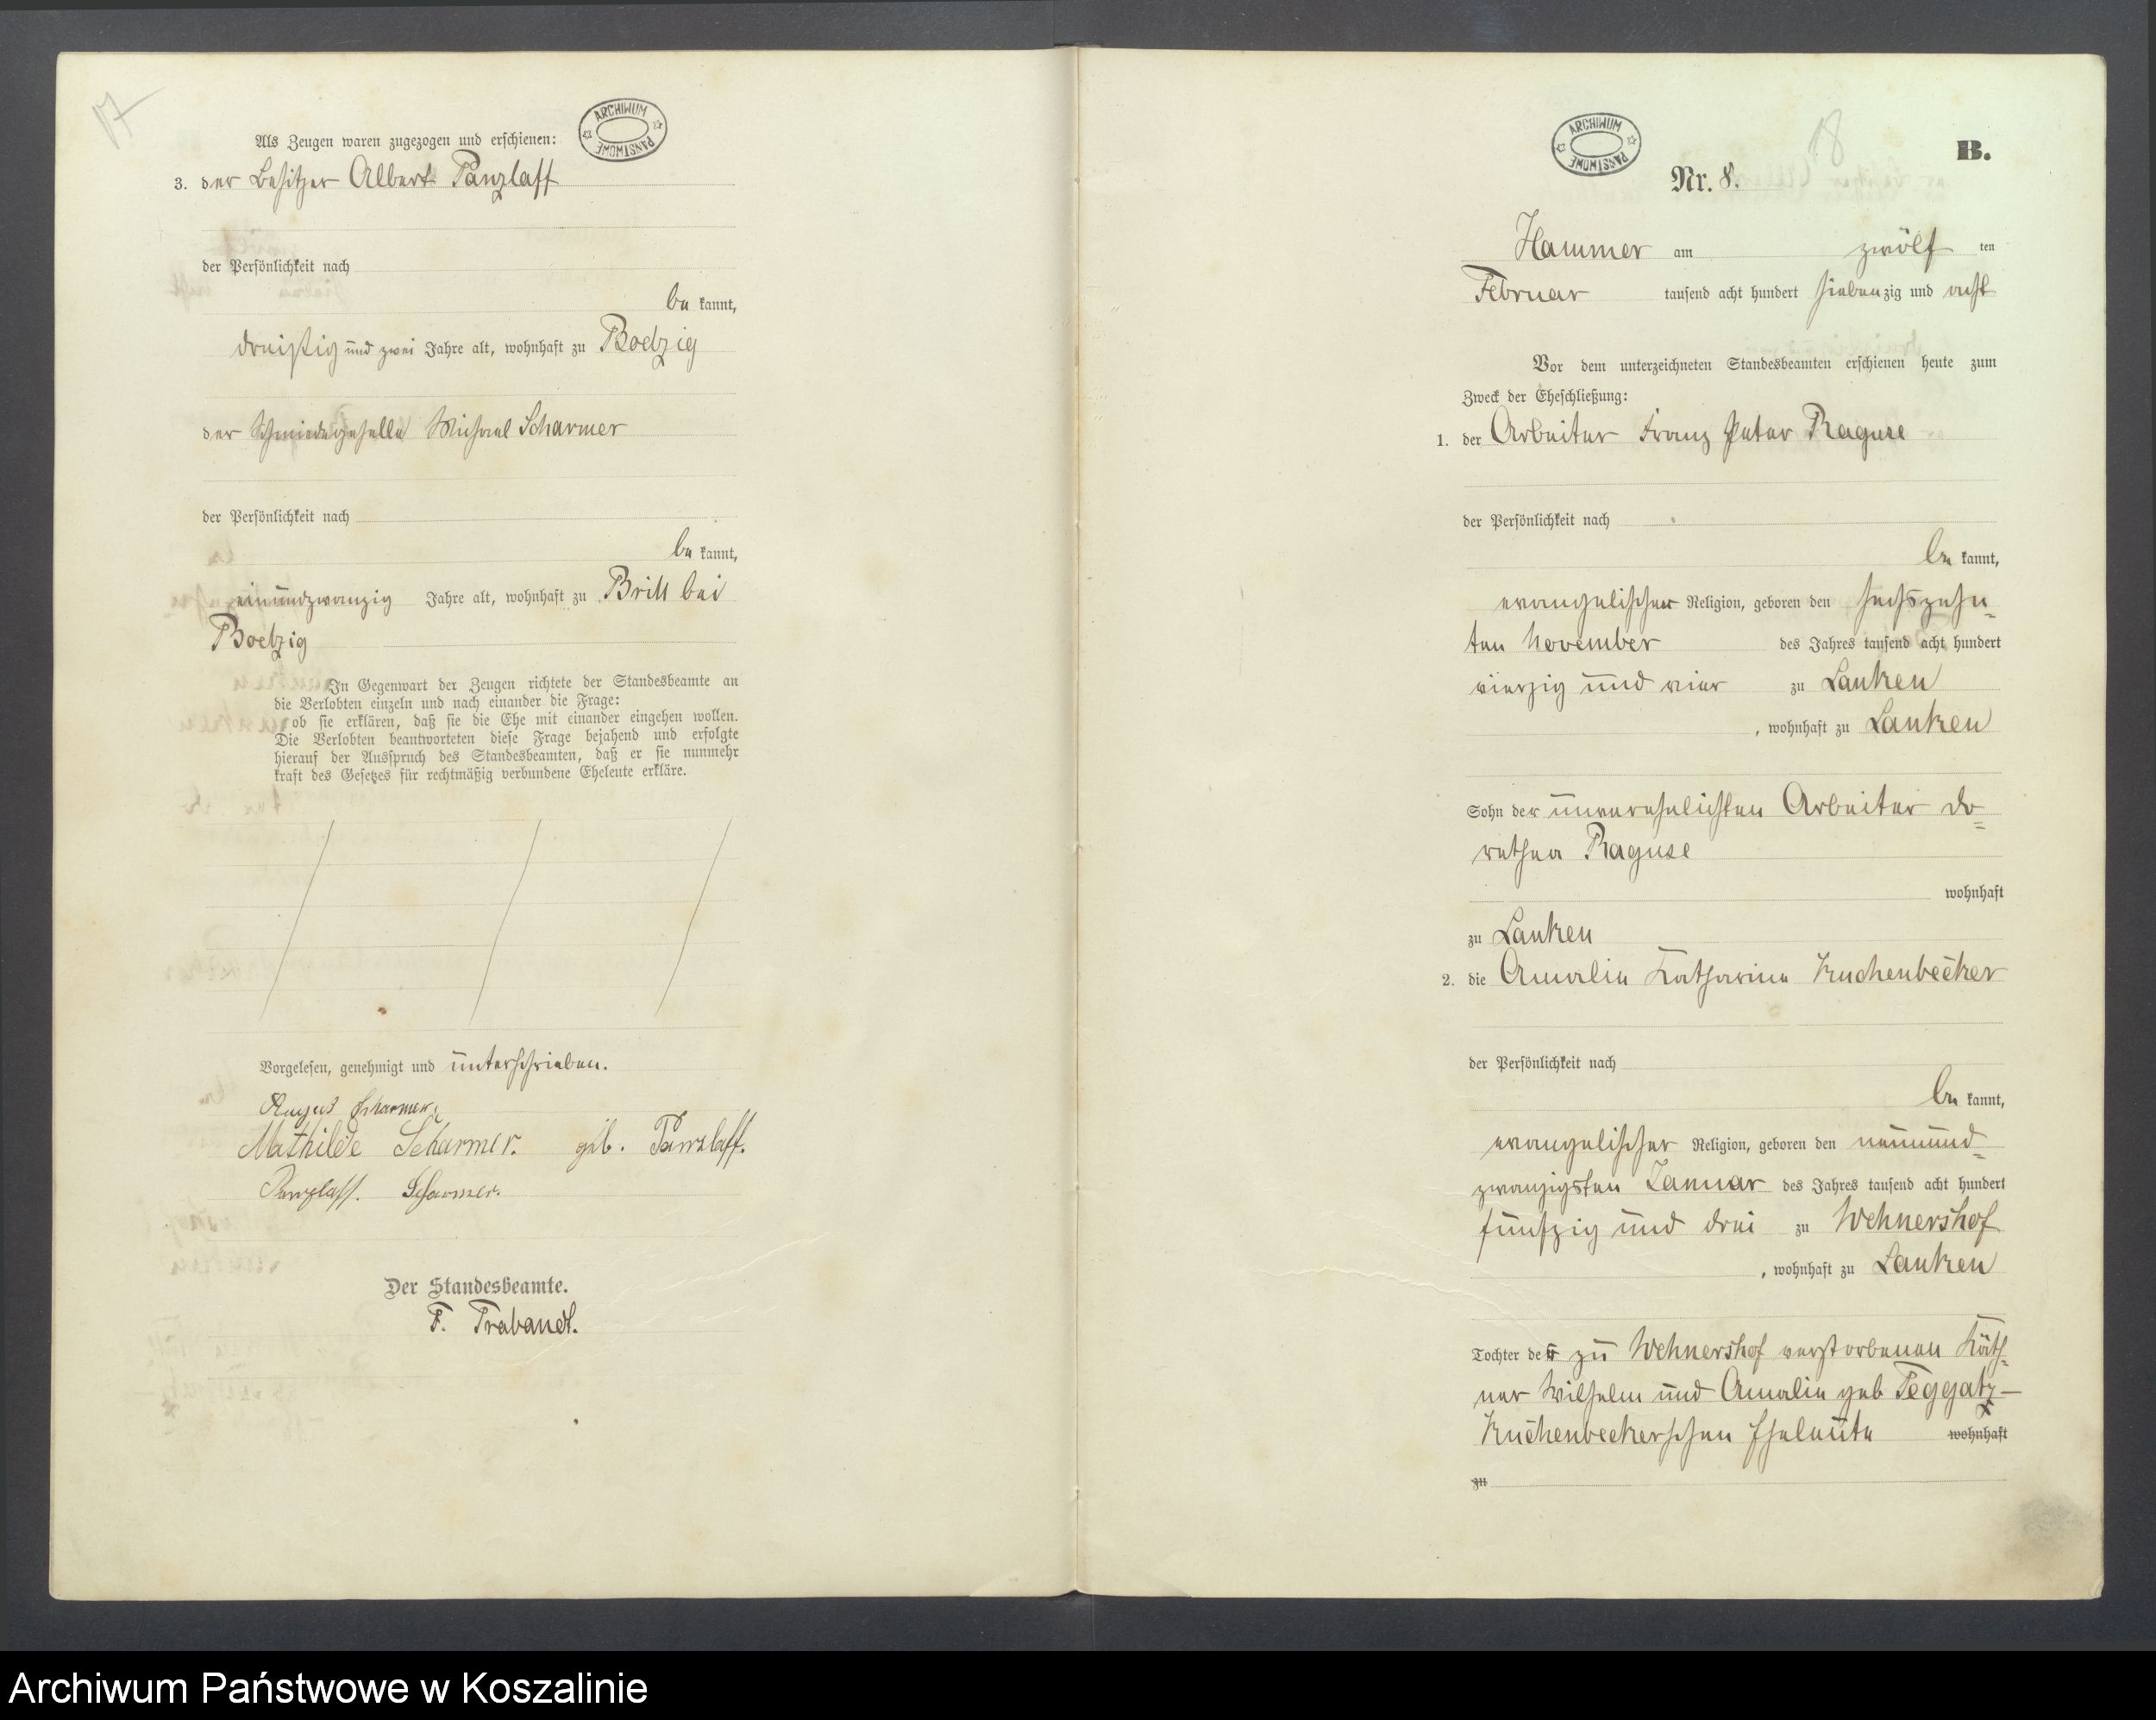 17
ARCHIWUM PAŃSTWOWE
Als Zeugen waren zugezogen und erschienen:
3. der Besitzer Albert Panzlaff
der Persönlichkeit nach
be kannt,
dreißig und zwei Jahre alt, wohnhaft zu Boetzig
der Schmiedegeselle Michael Scharmer
der Persönlichkeit nach
be kannt,
einundzwanzig Jahre alt, wohnhaft zu Brill bei
Boetzig
In Gegenwart der Zeugen richtete der Standesbeamte an
die Verlobten einzeln und nach einander die Frage:
ob sie erklären, daß sie die Ehe mit einander eingehen wollen.
Die Verlobten beantworteten diese Frage bejahend und erfolgte
hierauf der Ausspruch des Standesbeamten, daß er sie nunmehr
kraft des Gesetzes für rechtmäßig verbundene Eheleute erkläre.
Vorgelesen, genehmigt und unterschrieben.
August Scharmer.
Mathilde Scharmer. geb. Panzlaff.
Panzlaff. Scharmer.
Der Standesbeamte.
F. Trabandt.
ARCHIWUM PAŃSTWOWE
18
B.
Nr. 8.
Hammer am zwölf ten
Februar tausend acht hundert siebenzig und acht
Vor dem unterzeichneten Standesbeamten erschienen heute zum
Zweck der Eheschließung:
1. der Arbeiter Franz Peter Raguse
der Persönlichkeit nach
be kannt,
evangelischer Religion, geboren den sechszehn-
ten November des Jahres tausend acht hundert
vierzig und vier zu Lanken
, wohnhaft zu Lanken
Sohn der unverehelichten Arbeiter Do-
rethea Raguse
wohnhaft
zu Lanken
2. die Amalie Katharine Kuchenbecker
der Persönlichkeit nach
be kannt,
evangelischer Religion, geboren den neunund-
zwanzigsten Januar des Jahres tausend acht hundert
fünfzig und drei zu Wehnershof
, wohnhaft zu Lanken
Tochter der zu Wehnershof verstorbenen Käth-
ner Wilhelm und Amalie geb Teggatz-
Kuchenbeckerschen Eheleute wohnhaft
zu
Archiwum Państwowe w Koszalinie